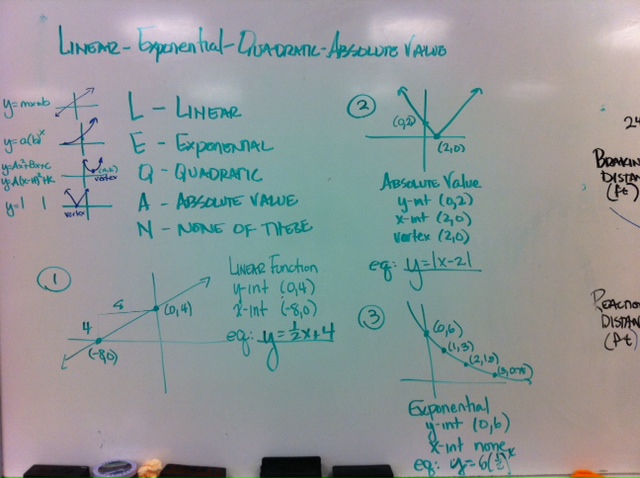 LINEAR - EXPONENTIAL - QUADRATIC - ABSOLUTE VALUE
y=mx+b
y=a(b)^x
y=Ax²+Bx+c
y=A(x-h)²+K
(h,k)
vertex
y=| |
vertex
L - LINEAR
E - EXPONENTIAL
Q - QUADRATIC
A - ABSOLUTE VALUE
N - NONE OF THESE
①
8
4
(0,4)
(-8,0)
LINEAR Function
y-int (0,4)
x-int (-8,0)
eq: y=½x+4
②
(0,2)
(2,0)
ABSOLUTE VALUE
y-int (0,2)
x-int (2,0)
vertex (2,0)
eq: y=|x-2|
③
(0,6)
(1,3)
(2,1.5)
Exponential
y-int (0,6)
x-int none
eq: y=6(½)^x
24
BRAKING
DISTAN
(ft)
REACTION
DISTAN
(ft)